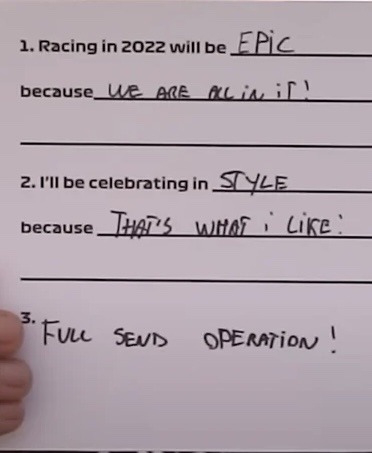 1. Racing in 2022 will be EPiC
because WE ARE ALL iN iT!
2. I'll be celebrating in STYLE
because THAT'S WHAT i LiKE!
3.
FULL SEND OPERATION!